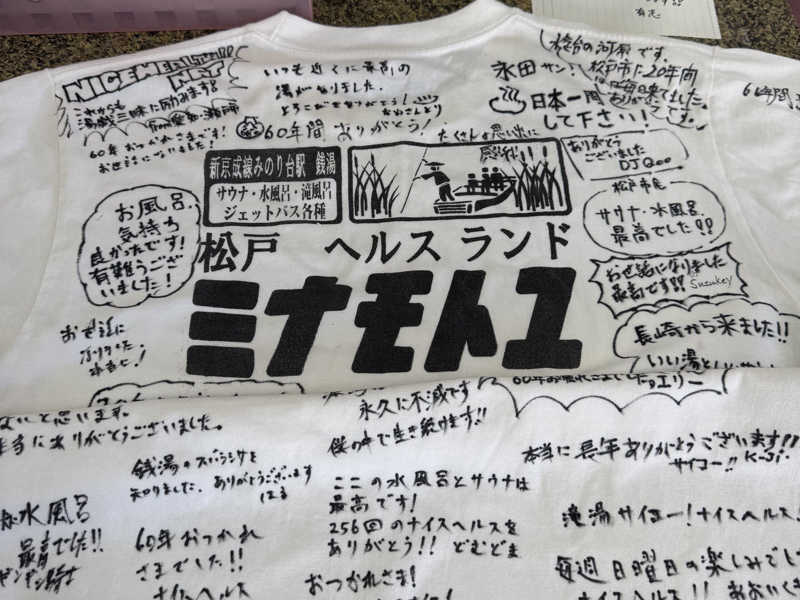 有志
NICEHEALTH!!
NET
これからも
湯巡三昧に励みます♨
60年おつかれさまです!
お世話になりました!
いつも近くに最高の
湯がありました。
60年間ありがとう!
永田サン!
日本一周
して下さい!
松戸市に20年間
たくさんの思い出に
感謝!
ありがとう
ございました
DJ Qoo
松戸市民
サウナ・水風呂、
最高でした!!
お世話になりました
最高です!! Suzukey
長崎から来ました!!
新京成線みのり台駅 銭湯
サウナ・水風呂・滝風呂
ジェットバス各種
松戸 ヘルスランド
ミナモトユ
お風呂、
気持ち
良かったです!
有難うござ
いました!
お世話に
なりました。
永久に不滅です
僕の中で生き続けます!!
ないと思います。
本当にありがとうございました。
銭湯のスバラシサを
知りました。ありがとうございます
水風呂
最高でした!!
60年おつかれ
さまでした!!
ナイスヘルス
ここの水風呂とサウナは
最高です!
256回のナイスヘルスを
ありがとう!! どむどま
おつかれさま!
本当に長年ありがとうございます!!
サイコー!! K-Ji
滝湯サイコー!ナイスヘルス!
毎週日曜日の楽しみでし
ナイスヘルス!!